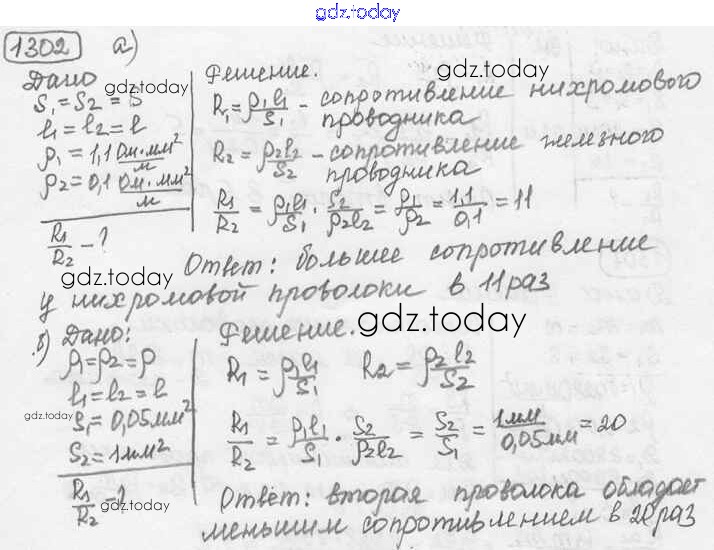 gdz.today
1302 а)
Дано
S₁ = S₂ = S
l₁ = l₂ = l
ρ₁ = 1,1 Ом·мм²/м
ρ₂ = 0,1 Ом·мм²/м
R₁/R₂ - ?
gdz.today
gdz.today
Решение.
gdz.today
R₁ = ρ₁l₁/S₁ - сопротивление нихромового
проводника
R₂ = ρ₂l₂/S₂ - сопротивление железного
проводника
R₁/R₂ = ρ₁l₁/S₁ · S₂/ρ₂l₂ = ρ₁/ρ₂ = 1,1/0,1 = 11
Ответ: большее сопротивление
у нихромовой проволоки в 11 раз
б) Дано:
ρ₁ = ρ₂ = ρ
l₁ = l₂ = l
S₁ = 0,05 мм²
S₂ = 1 мм²
R₁/R₂ - ?
gdz.today
gdz.today
Решение.
gdz.today
R₁ = ρ₁l₁/S₁ R₂ = ρ₂l₂/S₂
R₁/R₂ = ρ₁l₁/S₁ · S₂/ρ₂l₂ = S₂/S₁ = 1мм/0,05мм = 20
Ответ: вторая проволока обладает
меньшим сопротивлением в 20 раз
gdz.today